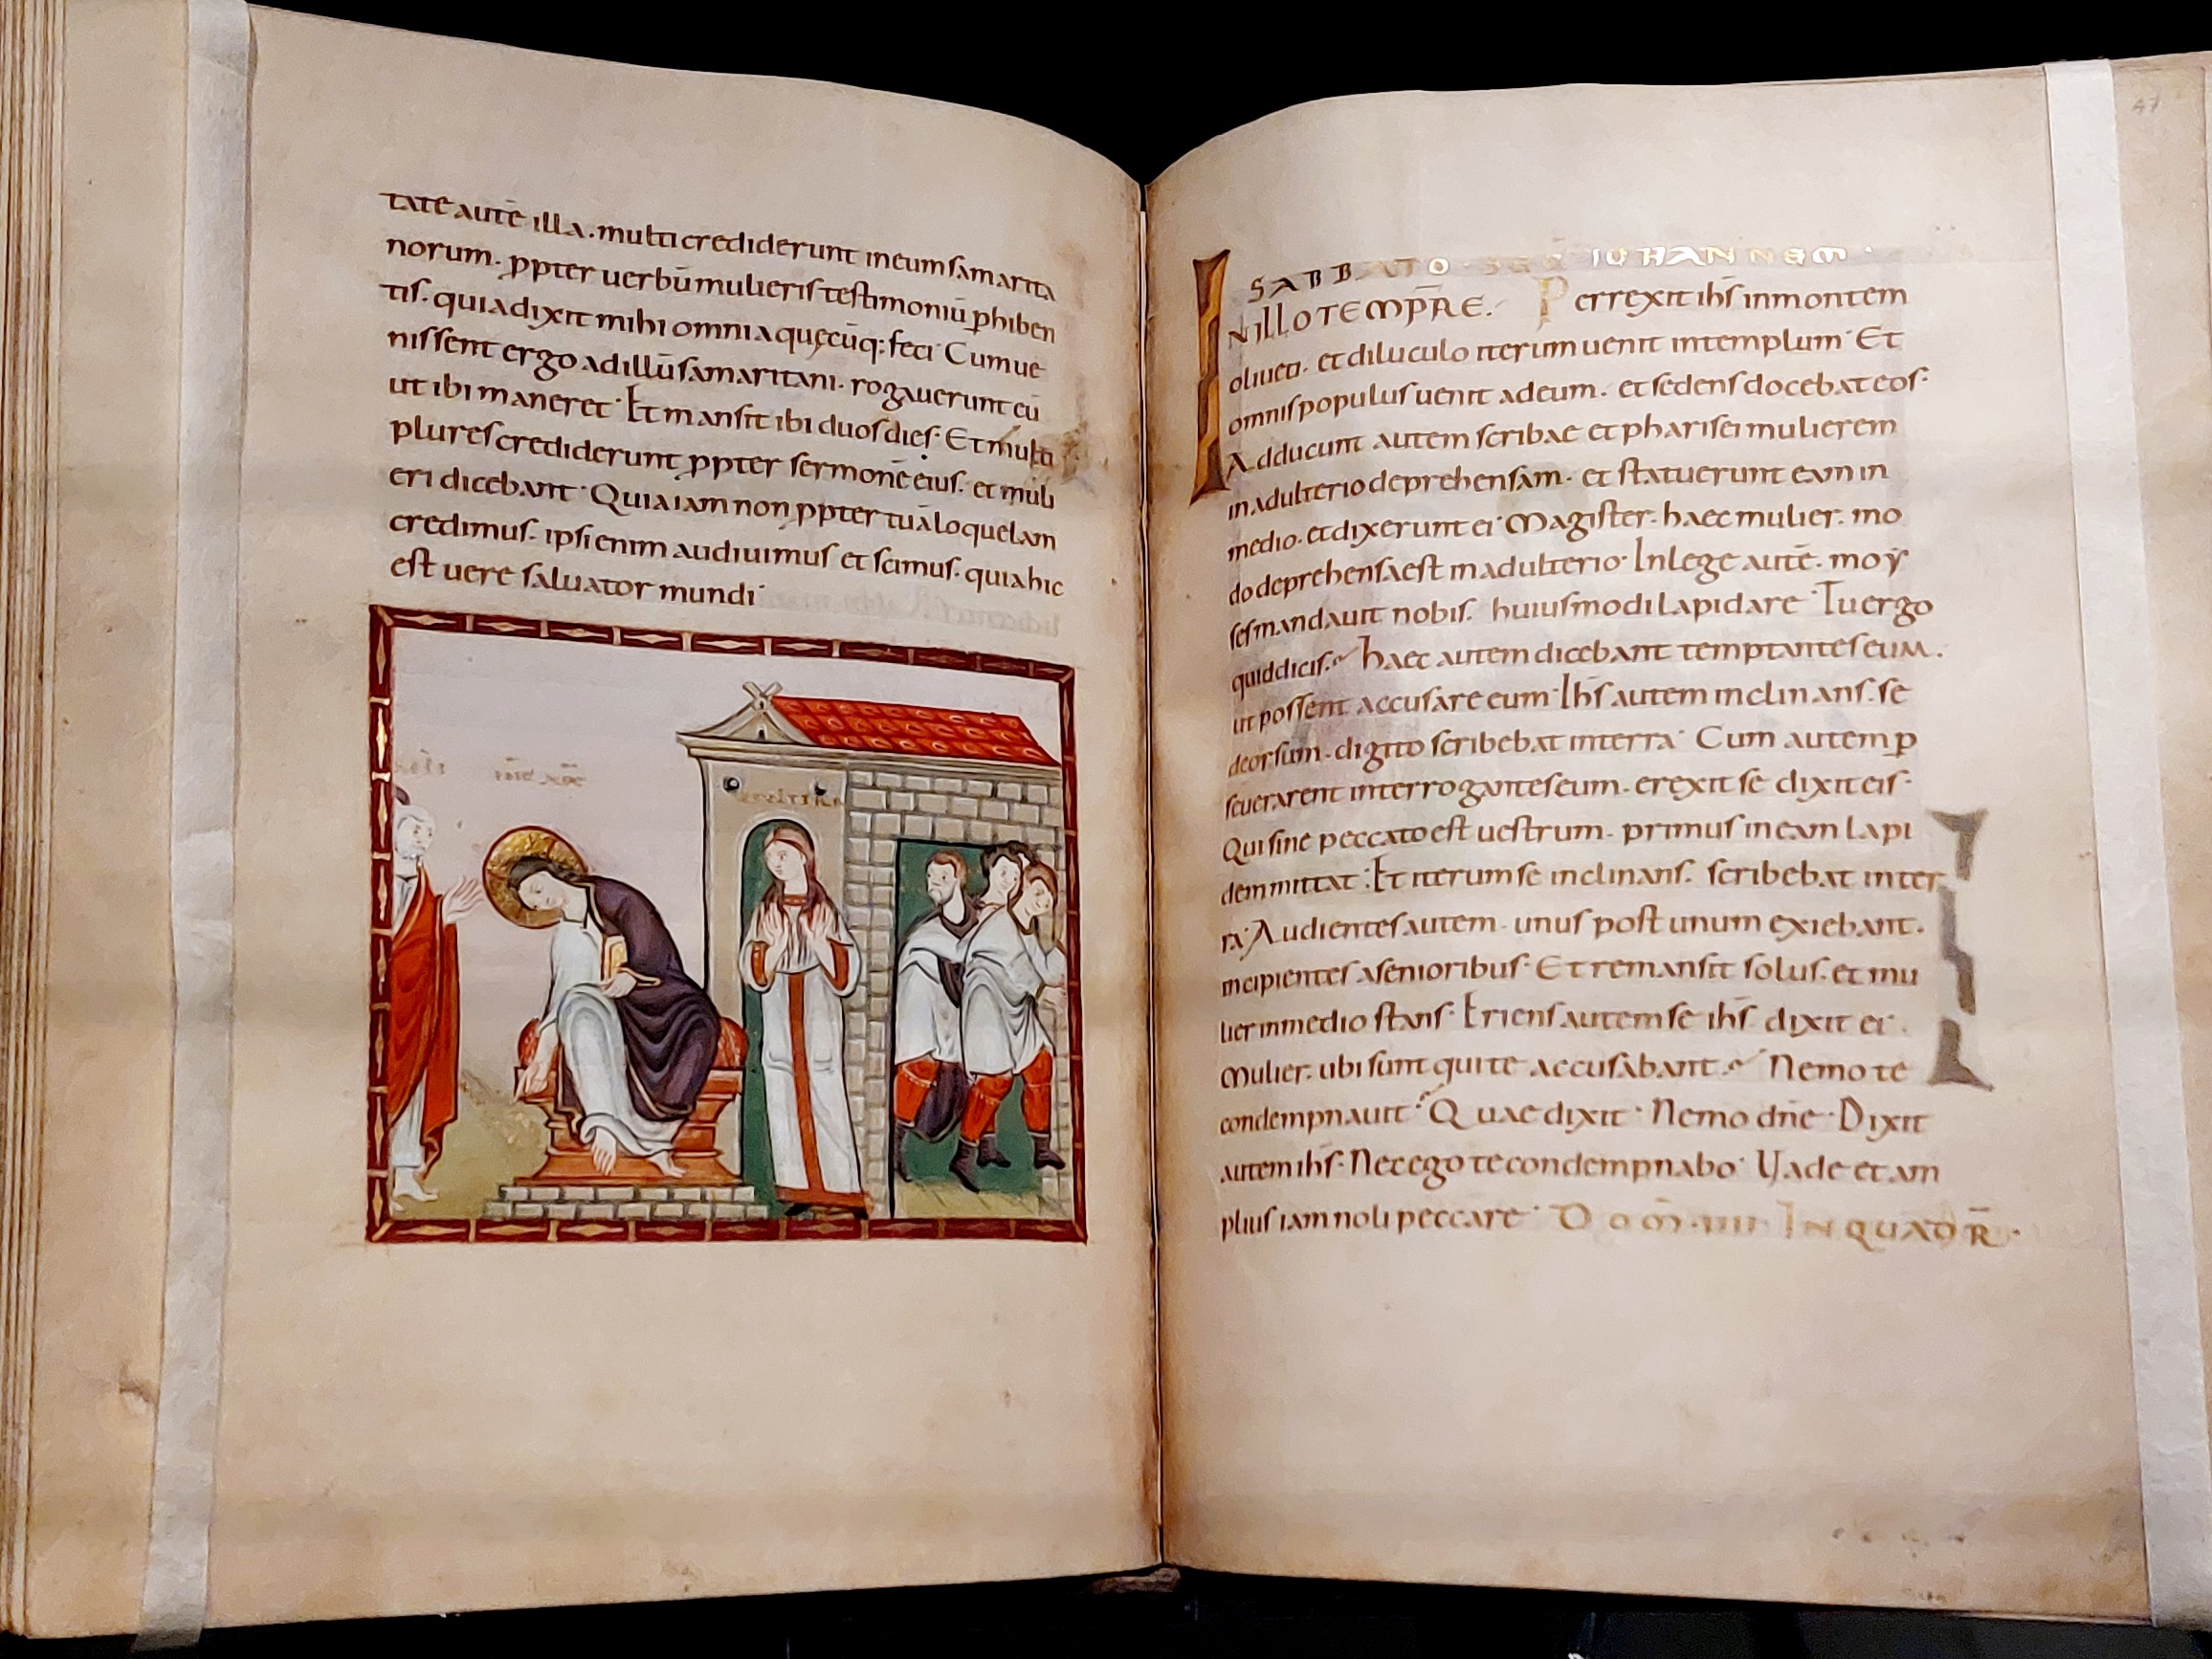 tate autē illa. multi crediderunt in eum samarita
norum. ꝓpter uerbū mulieris testimoniū ꝑhiben
tis. quia dixit mihi omnia quęcūq; feci. Cum ue
nissent ergo ad illū samaritani. rogauerunt eū
ut ibi maneret. Et mansit ibi duos dies. Et multi
plures crediderunt ꝓpter sermonē eius. et muli
eri dicebant. Quia iam non ꝓpter tuā loquelam
credimus. ipsi enim audiuimus et scimus. quia hic
est uere saluator mundi.
SABBATO. IOHANNEM.
IN ILLO TEMPR̄E. Perrexit ih̄s in montem
oliueti. et diluculo iterum uenit in templum. Et
omnis populus uenit ad eum. et sedens docebat eos.
Adducunt autem scribae et pharisei mulierem
in adulterio deprehensam. et statuerunt eam in
medio. et dixerunt ei. Magister. haec mulier. mo
do deprehensa est in adulterio. In lege autē. moy
ses mandauit nobis. huiusmodi lapidare. Tu ergo
quid dicis. haec autem dicebant temptantes eum.
ut possent accusare eum. Ih̄s autem inclinans. se
deorsum. digito scribebat in terra. Cum autem ꝑ
seuerarent interrogantes eum. erexit se dixit eis.
Qui sine peccato est uestrum. primus in eam lapi
dem mittat. Et iterum se inclinans. scribebat in ter
ra. Audientes autem. unus post unum exiebant.
incipientes a senioribus. Et remansit solus. et mu
lier in medio stans. Eriens autem se ih̄s dixit ei.
Mulier. ubi sunt qui te accusabant. Nemo te
condempnauit. Quae dixit. Nemo dn̄e. Dixit
autem ih̄s. Nec ego te condempnabo. Uade et am
plius iam noli peccare. DOM̄. IIII. IN QUADR̄.